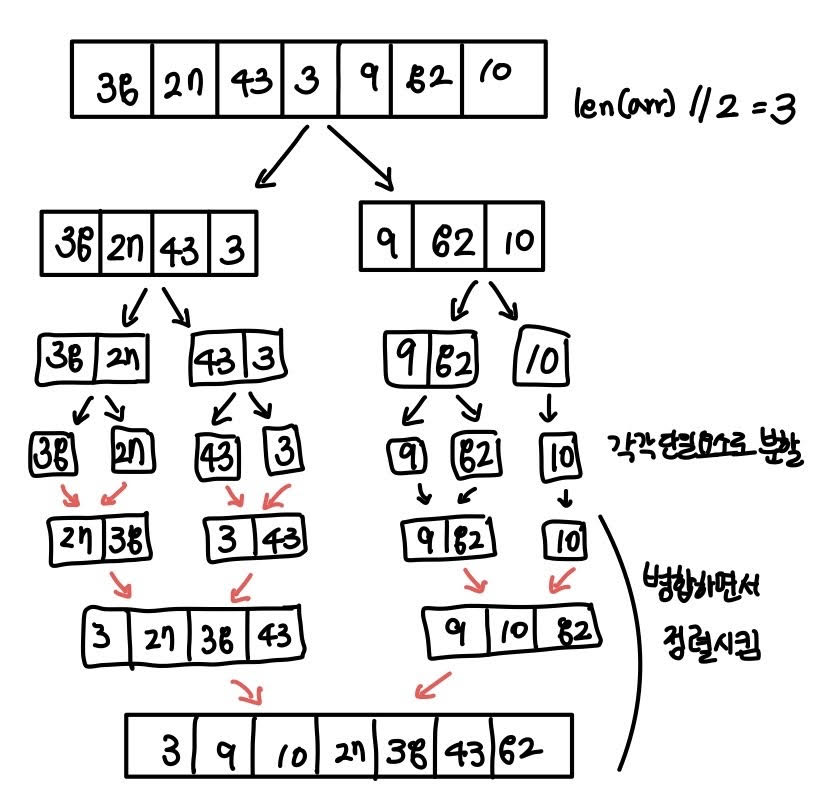 38 27 43 3 9 82 10
len(arr) // 2 = 3
38 27 43 3 9 82 10
38 27 43 3 9 82 10
38 27 43 3 9 82 10
각각 단일요소로 분할
27 38 3 43 9 82 10
병합하면서
3 27 38 43 9 10 82
정렬시킴
3 9 10 27 38 43 82